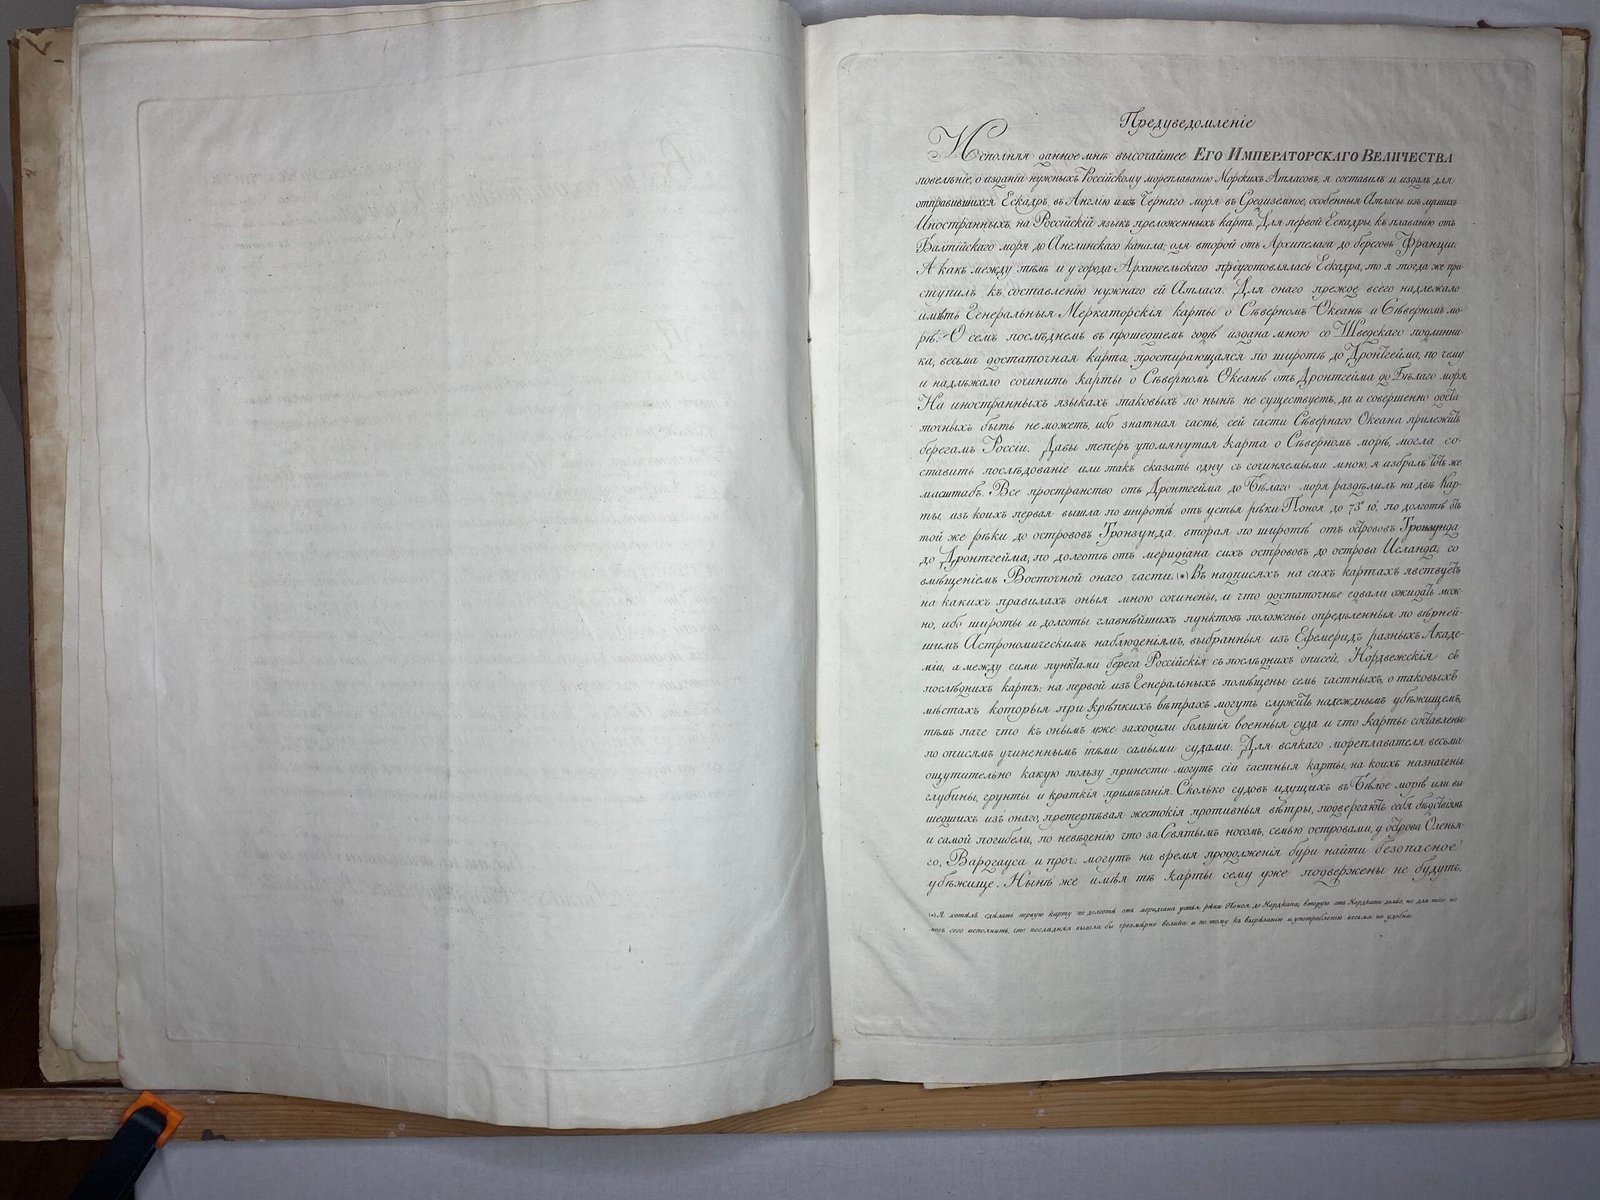 Предуведомленіе
Исполняя данное мнѣ высочайшее ЕГО ИМПЕРАТОРСКАГО ВЕЛИЧЕСТВА
повелѣніе, о изданіи нужныхъ Россійскому мореплаванію Морскихъ Атласовъ, я составилъ и издалъ для
отправившихся Ескадръ въ Англію и изъ Чернаго моря въ Средиземное, особенныя Атласы изъ лучшихъ
Иностранныхъ, на Россійскій языкъ преложенныхъ картъ. Для первой Ескадры, къ плаванію отъ
Балтійскаго моря до Аглинскаго канала; для второй отъ Архипелага до береговъ Франціи.
А какъ между тѣмъ и у города Архангельскаго пріуготовлялась Ескадра, то я тогда же при-
ступилъ къ составленію нужнаго ей Атласа. Для онаго прежде всего надлежало
имѣть Генеральныя Меркаторскія карты о Сѣверномъ Океанѣ и Сѣверномъ мо-
рѣ. О семъ послѣднемъ въ прошедшемъ годѣ издана мною со Шведскаго подлинни-
ка, весьма достаточная карта, простирающаяся по широтѣ до Дронтгейма, по чему
и надлѣжало сочинить карты о Сѣверномъ Океанѣ отъ Дронтгейма до Бѣлаго моря.
На иностранныхъ языкахъ таковыхъ по нынѣ не существуетъ, да и совершенно доста-
точныхъ быть не можетъ, ибо знатная часть, сей части Сѣвернаго Океана прилежитъ
берегамъ Россіи. Дабы теперь упомянутая карта о Сѣверномъ морѣ, могла со-
ставить послѣдованіе или такъ сказать одну съ сочиняемыми мною, я избралъ тотъ же
масштабъ. Все пространство отъ Дронтгейма до Бѣлаго моря раздѣлилъ на двѣ Кар-
ты, изъ коихъ первая вышла по широтѣ отъ устья рѣки Поноя до 73° 10', по долготѣ отъ
той же рѣки до острововъ Тронзунда, вторая по широтѣ отъ острововъ Тронзунда
до Дронтгейма, по долготѣ отъ меридіана сихъ острововъ до острова Исланда, со
вмѣщеніемъ Восточной онаго части. (*) Въ надписяхъ на сихъ картахъ явствуетъ
на какихъ правилахъ оныя мною сочинены, и что достаточнѣе едвали ожидать мож-
но, ибо широты и долготы главнѣйшихъ пунктовъ положены опредѣленныя по вѣрнѣй-
шимъ Астрономическимъ наблюденіямъ, выбранныя изъ Ефемеридъ разныхъ Акаде-
міи, а между сими пунктами берега Россійскія съ послѣднихъ описей, Нордвежскія съ
послѣднихъ картъ; на первой изъ Генеральныхъ помѣщены семь частныхъ, о таковыхъ
мѣстахъ которыя при крѣпкихъ вѣтрахъ могутъ служить надежнымъ убѣжищемъ,
тѣмъ паче что къ онымъ уже заходили большія военныя суда и что карты составлены
по описямъ учиненнымъ тѣми самыми судами. Для всякаго мореплавателя весьма
ощутительно какую пользу принести могутъ сіи частныя карты, на коихъ назначены
глубины, грунты и краткія примѣчанія. Сколько судовъ идущихъ въ Бѣлое морѣ или вы-
шедшихъ изъ онаго, претерпѣвая жестокія противныя вѣтры, подвергаютъ себя бѣдствіямъ
и самой погибели, по невѣденію что за Святымъ носомъ, семью островами, у острова Оленья-
го, Вардгауса и проч: могутъ на время продолженія бури найти безопасное
убѣжище. Нынѣ же имѣя тѣ карты сему уже подвержены не будутъ.
(*) Я хотѣлъ сдѣлать первую карту по долготѣ отъ меридіана устья рѣки Поноя до Нордкапа, вторую отъ Нордкапа далѣе, но для того не
могъ сего исполнить, что послѣдняя вышла бы чрезмѣрно велика и по тому къ вырѣзанію и употребленію весьма не удобна.